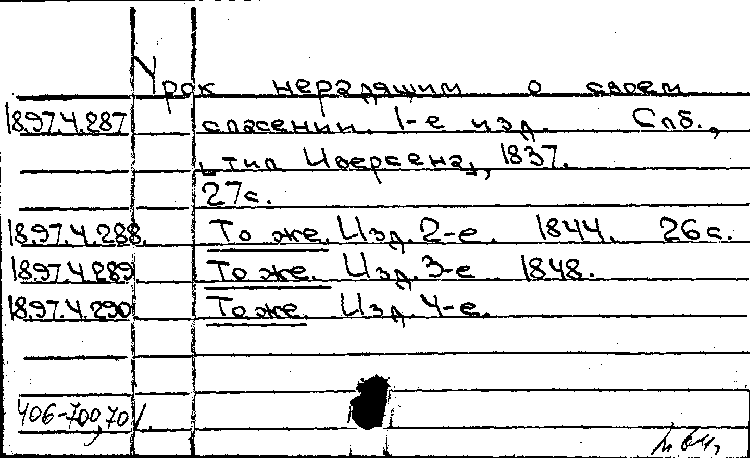 Урок нерадящим о своем
18.97.4.287 спасении. 1-е изд. Спб.,
тип. Иверсена, 1837.
27с.
18.97.4.288. То же. Изд. 2-е. 1844. 26с.
18.97.4.289 То же. Изд. 3-е 1848.
18.97.4.290 То же. Изд. 4-е.
406-700,70/.